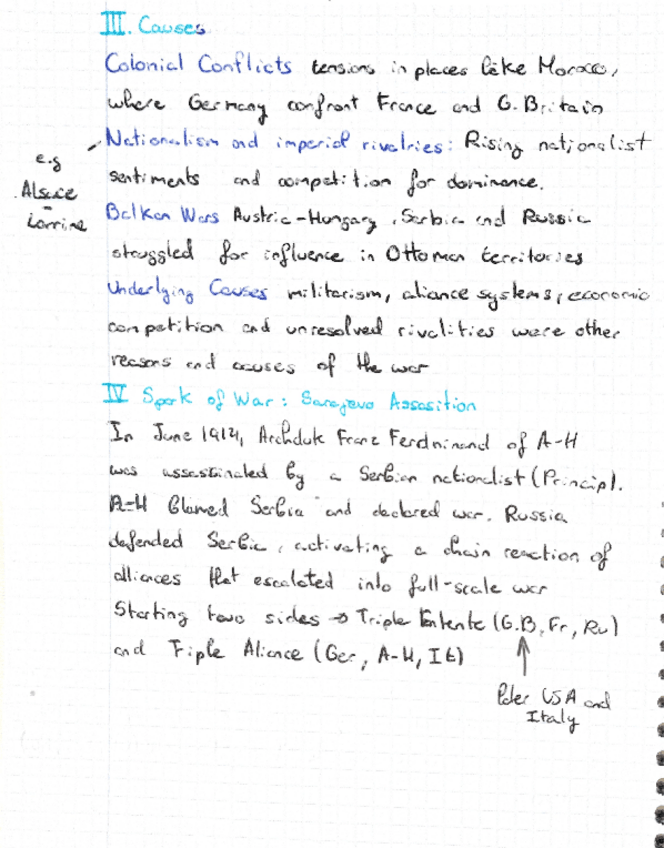 III. Causes
Colonial Conflicts tensions in places like Morocco,
where Germany confront France and G. Britain
Nationalism and imperial rivalries: Rising nationalist
e.g
Alsace
-
Lorrine
sentiments and competition for dominance.
Balkan Wars Austria-Hungary, Serbia and Russia
struggled for influence in Ottoman territories
Underlying Causes militarism, aliance systems, economic
competition and unresolved rivalities were other
reasons and causes of the war
IV Spark of War: Sarajevo Assasition
In June 1914, Archduk Franz Ferdninand of A-H
was assassinated by a Serbian nationalist (Princip).
A-H Blamed Serbia and declared war. Russia
defended Serbia, activating a chain reaction of
alliances that escalated into full-scale war
Starting two sides → Triple Entente (G.B, Fr, Ru)
and Triple Aliance (Ger, A-H, It)
later USA and
Italy